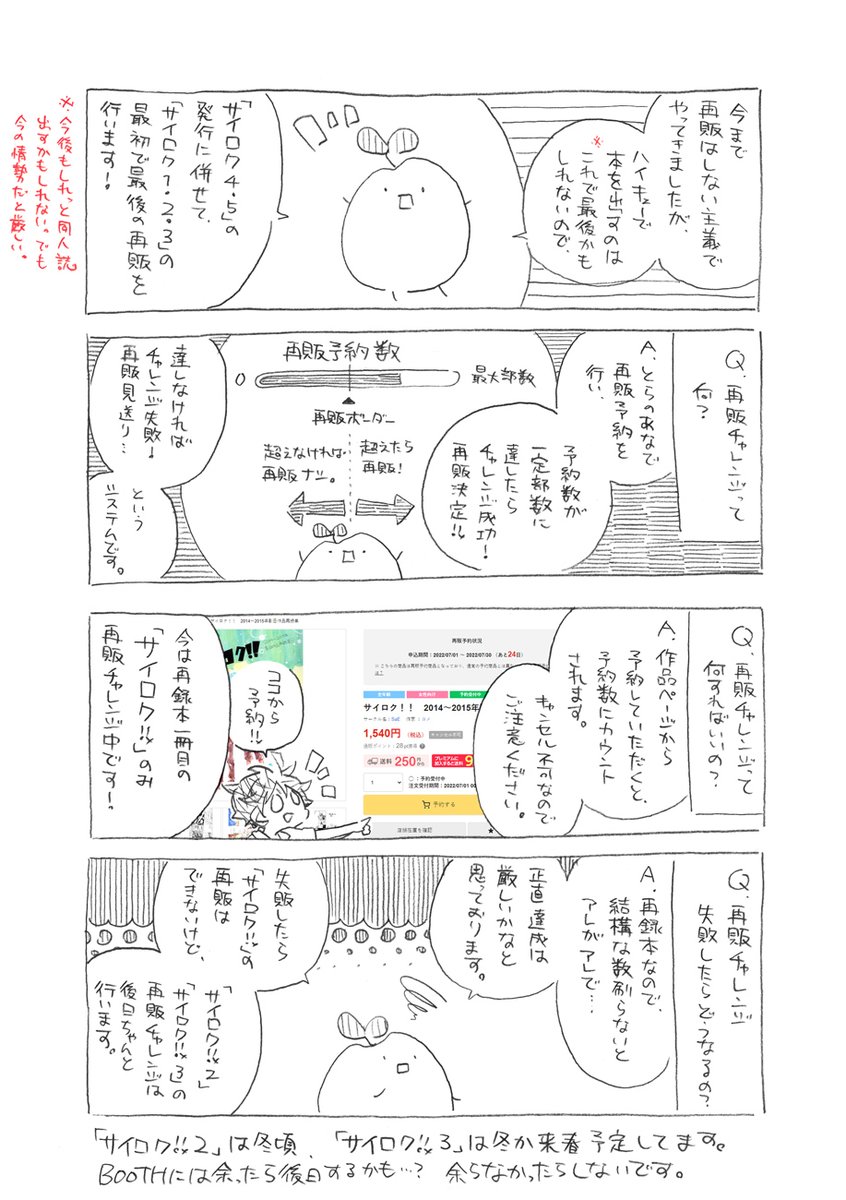 今まで
再販はしない主義で
やってきましたが、
ハイキューで
本を出すのは
※これで最後かも
しれないので、
「サイロク4・5」の
発行に併せて、
「サイロク1・2・3」の
最初で最後の再販を
行います!
※今後もしれっと同人誌
出すかもしれない。でも
今の情勢だと厳しい。
Q.再販チャレンジって
何?
A.とらのあなで
再販予約を
行い、
予約数が
一定部数に
達したら
チャレンジ成功!
再販決定!!
再販予約数
0
最大部数
再販ボーダー
超えたら
再販!
超えなければ
再販ナシ。
達しなければ
チャレンジ失敗!
再販見送り…
という
システムです。
Q.再販チャレンジって
何すればいいの?
A.作品ページから
予約していただくと、
予約数にカウント
されます。
キャンセル不可なので
ご注意ください。
再販予約状況
申込期間:2022/07/01 ~ 2022/07/30 (あと24日)
サイロク!! 2014~2015年
1,540円 (税込) キャンセル不可
送料 250円から
プレミアムに
加入すると送料
1
◯:予約受付中
注文受付期間:2022/07/01 00
予約する
店舗在庫を確認
サイロク!! 2014~2015年影日作品再録集
ココから
予約!!
今は再録本一冊目の
「サイロク!!」のみ
再販チャレンジ中です!
Q.再販チャレンジ
失敗したらどうなるの?
A.再録本なので、
結構な数刷らないと
アレがアレで…
正直達成は
厳しいかなと
思っております。
失敗したら
「サイロク!!」の
再販は
できないけど、
「サイロク!!2」
「サイロク!!3」の
再販チャレンジは
後日ちゃんと
行います。
「サイロク!!2」は冬頃、「サイロク!!3」は冬か来春予定してます。
BOOTHには余ったら後日するかも…? 余らなかったらしないです。